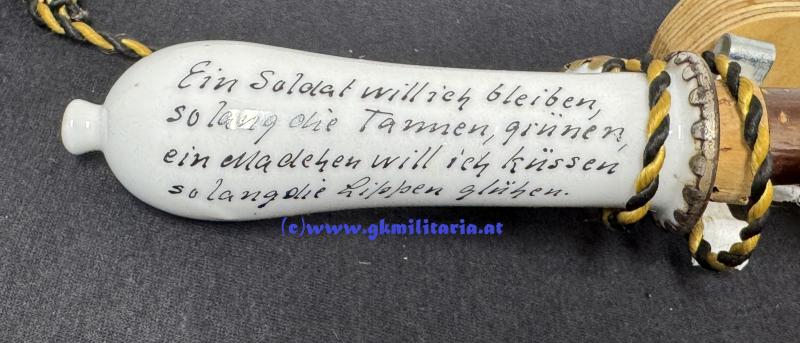 Ein Soldat will ich bleiben,
solang die Tannen, grünen,
ein Mädchen will ich küssen
solang die Lippen glühen.
(c)www.gkmilitaria.at